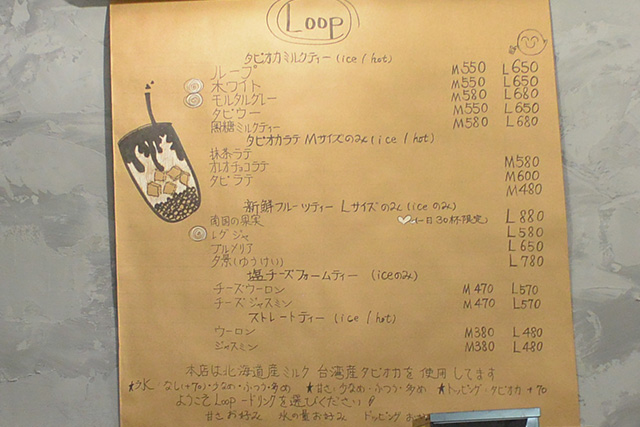 Loop
タピオカミルクティー (ice / hot)
ループ M550 L650
ホワイト M550 L650
モルタルグレー M580 L680
タピウー M550 L650
黒糖ミルクティー M580 L680
タピオカラテ Mサイズのみ (ice / hot)
抹茶ラテ M580
オレオチョコラテ M600
タピラテ M480
新鮮フルーツティー Lサイズのみ (iceのみ)
南国の果実 (一日30杯限定) L880
レグジャ L580
プルメリア L650
夕景(ゆうけい) L780
塩チーズフォームティー (iceのみ)
チーズウーロン M470 L570
チーズジャスミン M470 L570
ストレートティー (ice / hot)
ウーロン M380 L480
ジャスミン M380 L480
本店は北海道産ミルク 台湾産タピオカを使用してます
★氷 なし(+70)・少なめ・ふつう・多め ★甘さ 少なめ・ふつう・多め ★トッピング・タピオカ+70
ようこそLoop ードリンクを選びください!
甘さお好み 氷の量お好み トッピング